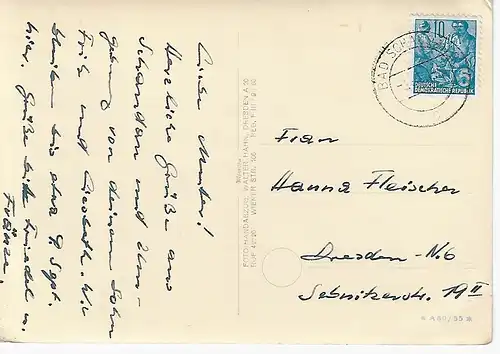 Liebe Mutter!
Herzliche Grüße aus
Schandau und Um-
gebung von deinem Sohn
Fritz und Liesbeth. Wir
bleiben bis etwa 9 Sept.
hier. Grüße bitte Friedel u.
Fränze.
FOTO-HANDABZUG: WALTER HAHN, DRESDEN A 50
WIENER STR. 106
10
DEUTSCHE
DEMOKRATISCHE REPUBLIK
BAD SCHANDAU
Frau
Hanna Fleischer
Dresden-N.6
Sebnitzerstr. 19 II
* A 89/55 *